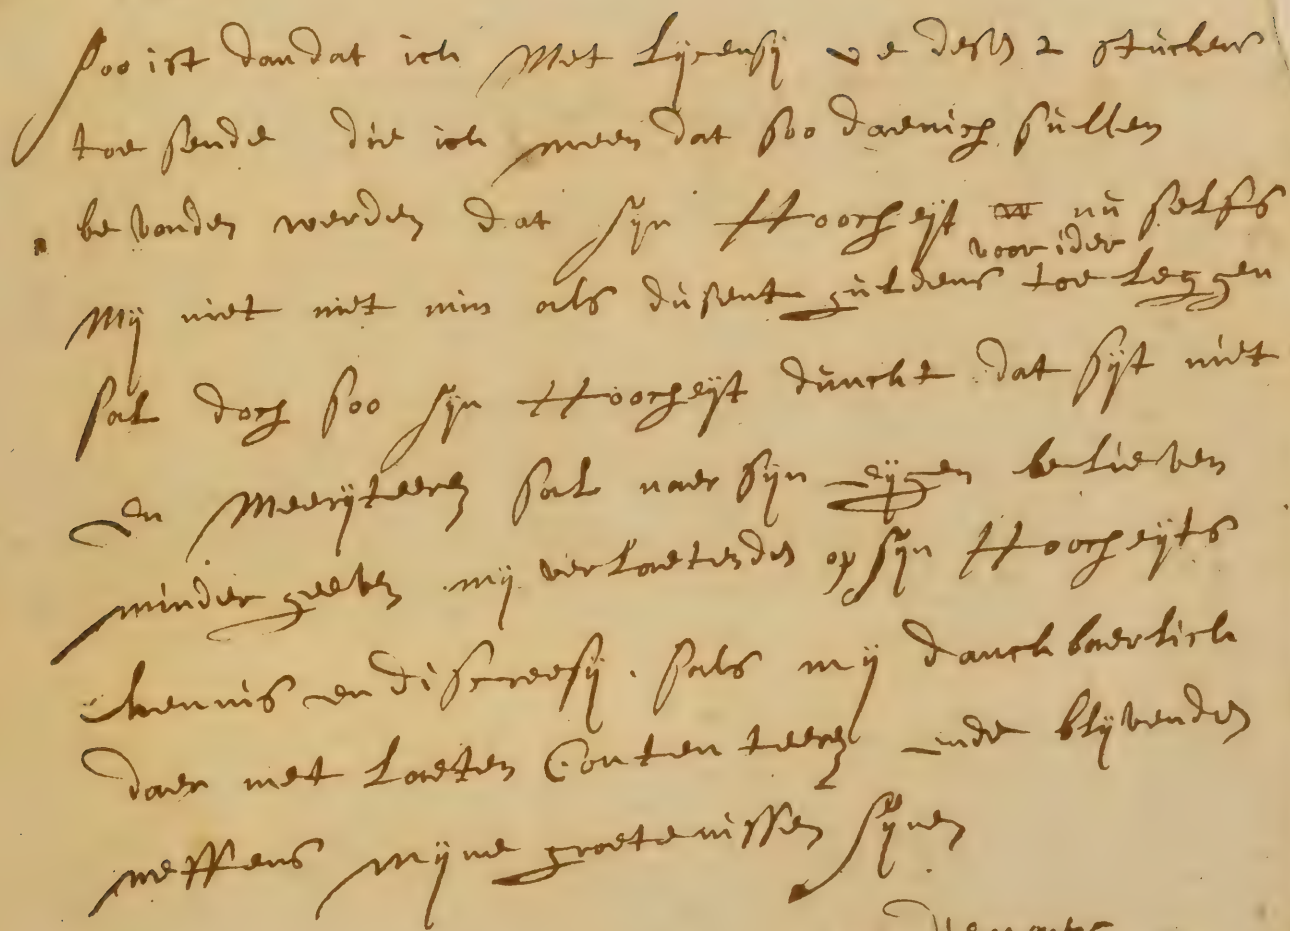 soo ist dan dat ick Met lijcensij ue dese 2 stucken
toe sende die ick meen dat soo daenich sullen
bevonden werden dat sijn Hoocheijt nu selfs
voor ider
Mij niet met min als dusent guldens toe leggen
sal doch soo sijn Hoocheijt dunckt dat sijt niet
en Meerijteeren sal naer sijn eijgen believen
minder geeven mij verlaetende op sijn Hoocheijts
kennis en discreesij. sals mij danckbaerlick
daer met laeten Contenteeren ende blijvende
neffens mijne groetenissen sijnen